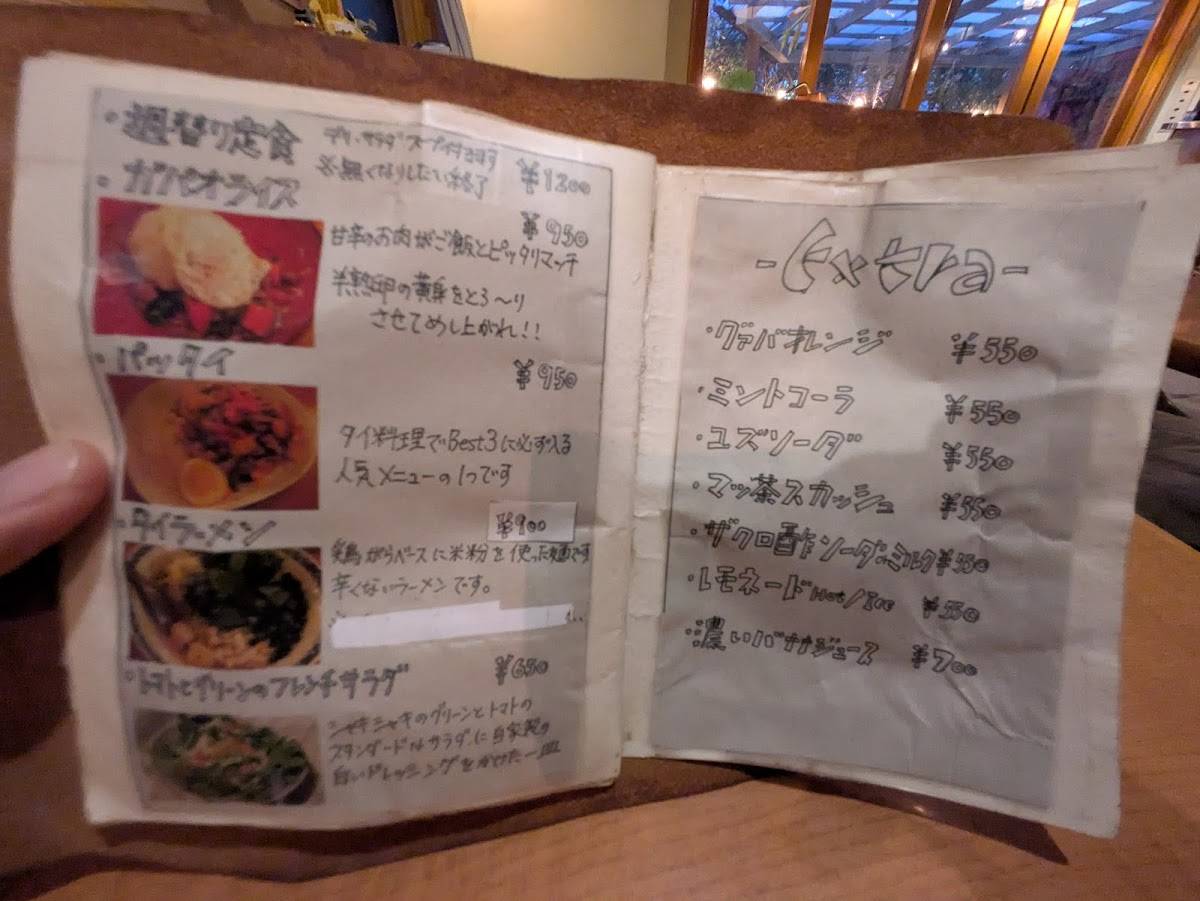 ・週替り定食
デリ・サラダ スープ付きます
※無くなりしだい終了
¥1200
・ガパオライス
¥950
甘辛のお肉がご飯とピッタリマッチ
半熟卵の黄身をとろ〜り
させてめし上がれ!!
・パッタイ
¥950
タイ料理でBest3に必ず入る
人気メニューの1つです
・タイラーメン
¥900
鶏がらベースに米粉を使った麺です
辛くないラーメンです。
・トマトとグリーンのフレンチサラダ
¥650
シャキシャキのグリーンとトマトの
スタンダードなサラダに自家製の
白いドレッシングをかけた一皿
-Extra-
・グァバオレンジ ¥550
・ミントコーラ ¥550
・ユズソーダ ¥550
・マッ茶スカッシュ ¥550
・ザクロ酢ソーダ・ミルク ¥550
・レモネード Hot/Ice ¥550
・濃いバナナジュース ¥700